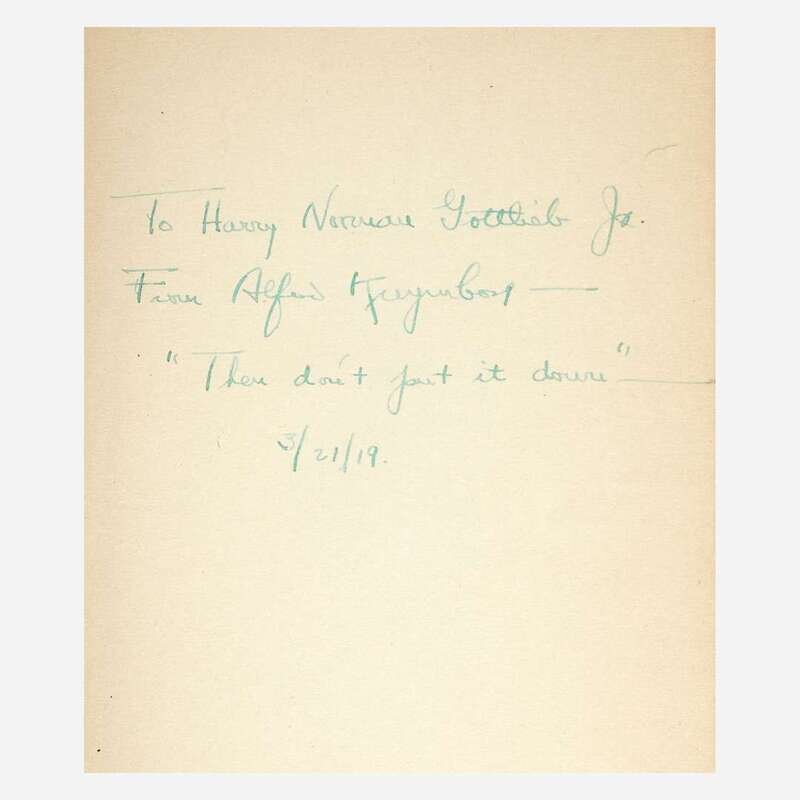 To Harry Norman Gottlieb Jr.
From Alfred Kreymborg —
"Then don't put it down" —
3/21/19.